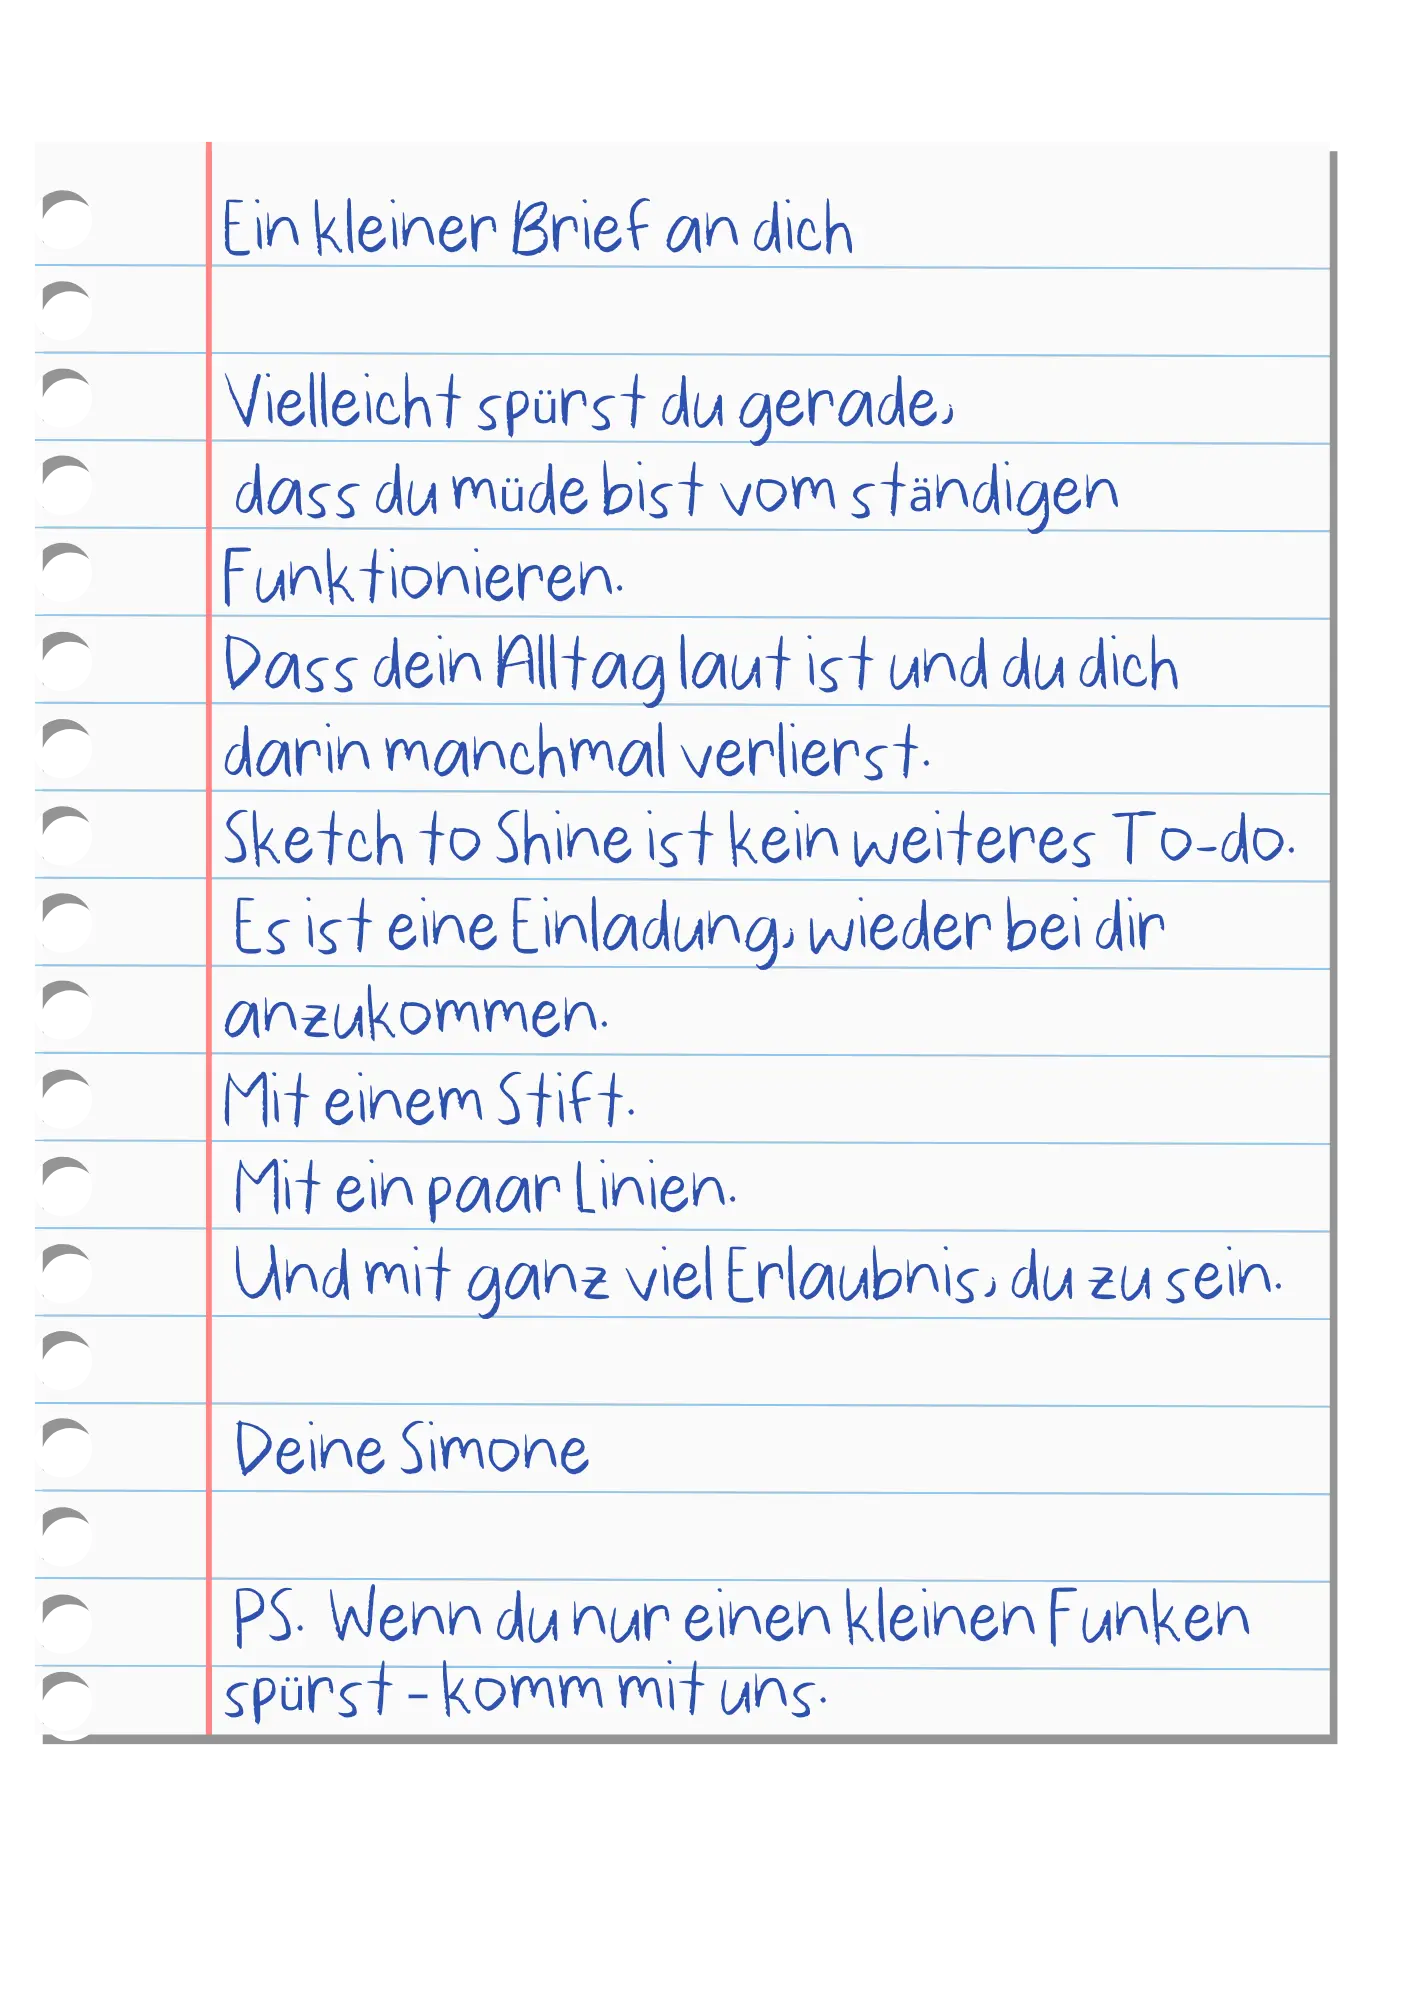 Ein kleiner Brief an dich
Vielleicht spürst du gerade,
dass du müde bist vom ständigen
Funktionieren.
Dass dein Alltag laut ist und du dich
darin manchmal verlierst.
Sketch to Shine ist kein weiteres To-do.
Es ist eine Einladung, wieder bei dir
anzukommen.
Mit einem Stift.
Mit ein paar Linien.
Und mit ganz viel Erlaubnis, du zu sein.
Deine Simone
PS. Wenn du nur einen kleinen Funken
spürst - komm mit uns.